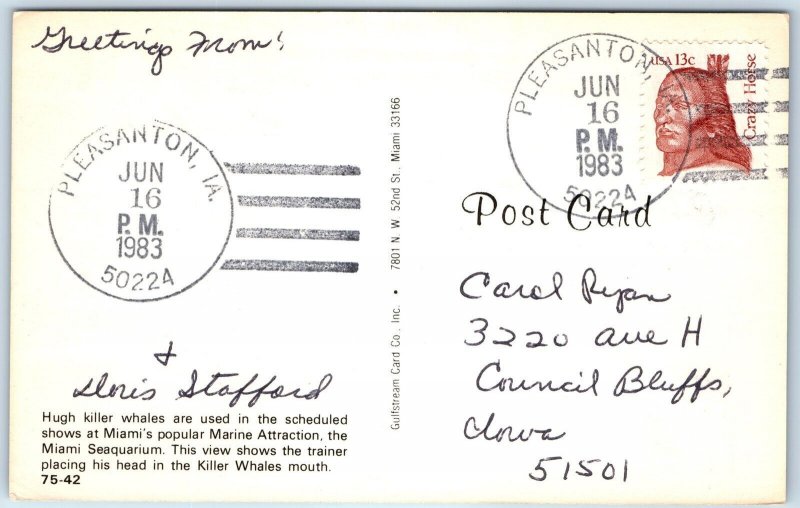 Greetings From!
PLEASANTON, IA.
JUN
16
P.M.
1983
50224
&
Doris Stafford
Hugh killer whales are used in the scheduled
shows at Miami's popular Marine Attraction, the
Miami Seaquarium. This view shows the trainer
placing his head in the Killer Whales mouth.
75-42
Gulfstream Card Co., Inc. • 7801 N. W. 52nd St. Miami 33166
PLEASANTON,
JUN
16
P.M.
1983
50224
USA 13c
Crazy Horse
Post Card
Carol Ryan
3220 Ave H
Council Bluffs,
Iowa
51501